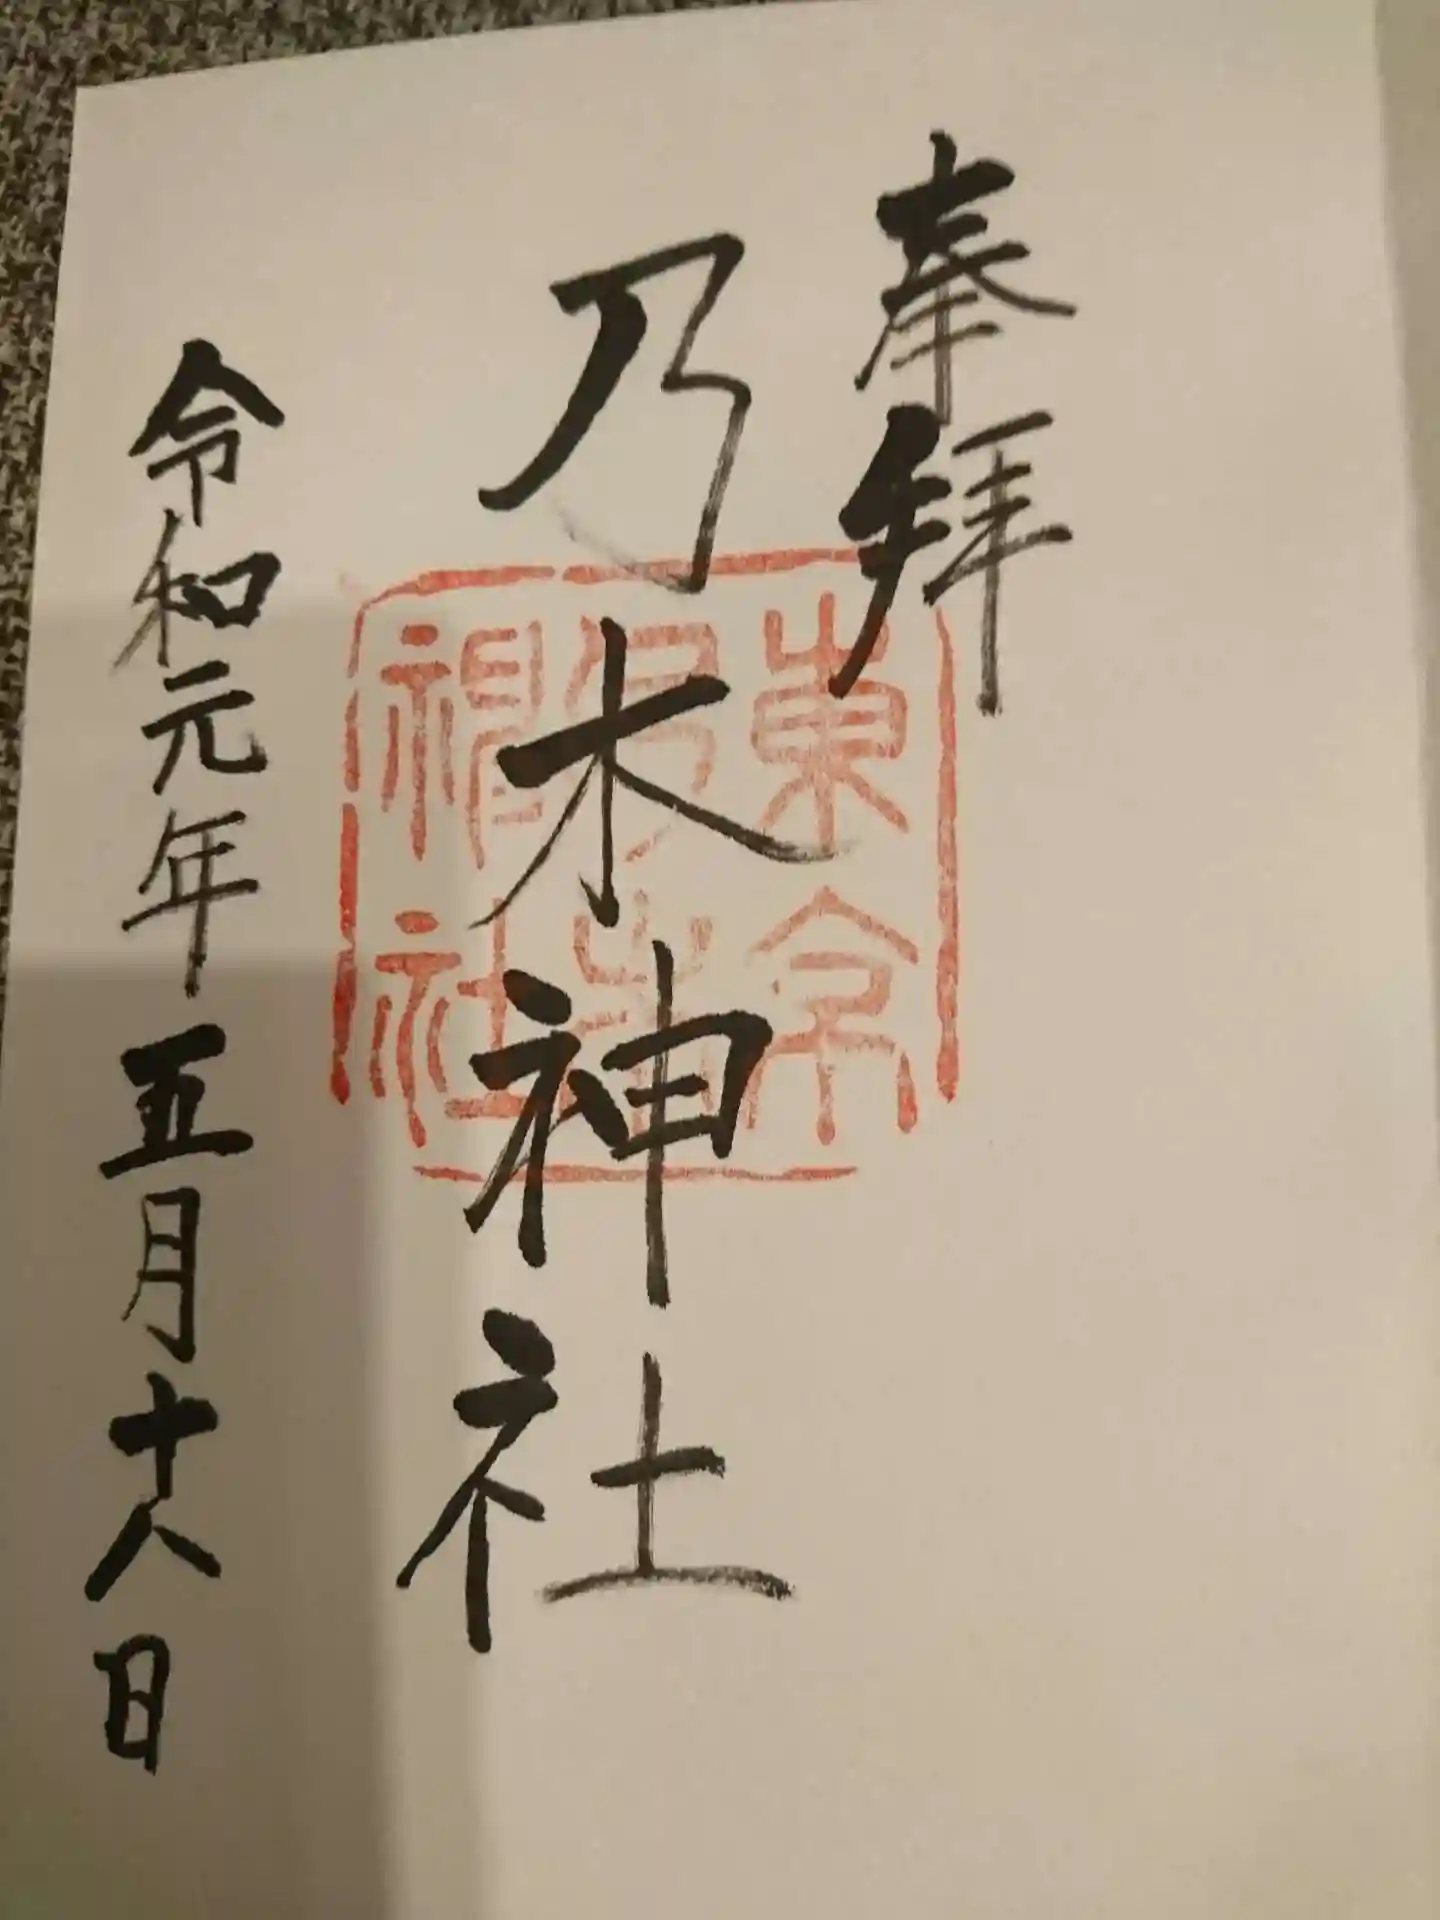 奉拝
乃木神社
東京
乃木
神社
令和元年五月十八日